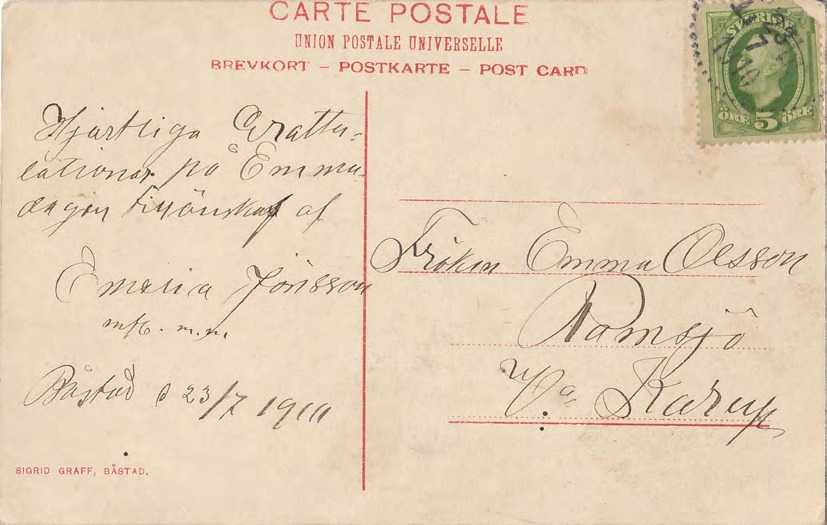 CARTE POSTALE
UNION POSTALE UNIVERSELLE
BREVKORT – POSTKARTE – POST CARD
SVERIGE
ÖRE 5 ÖRE
Hjärtliga Gratta-
lationer på Emma-
dagen tillönskas af
Emelia Jönsson
m.m.
Båstad d 23/7 1910
SIGRID GRAFF, BÅSTAD.
Fröken Emma Olsson
Ramsjö
V. Karup